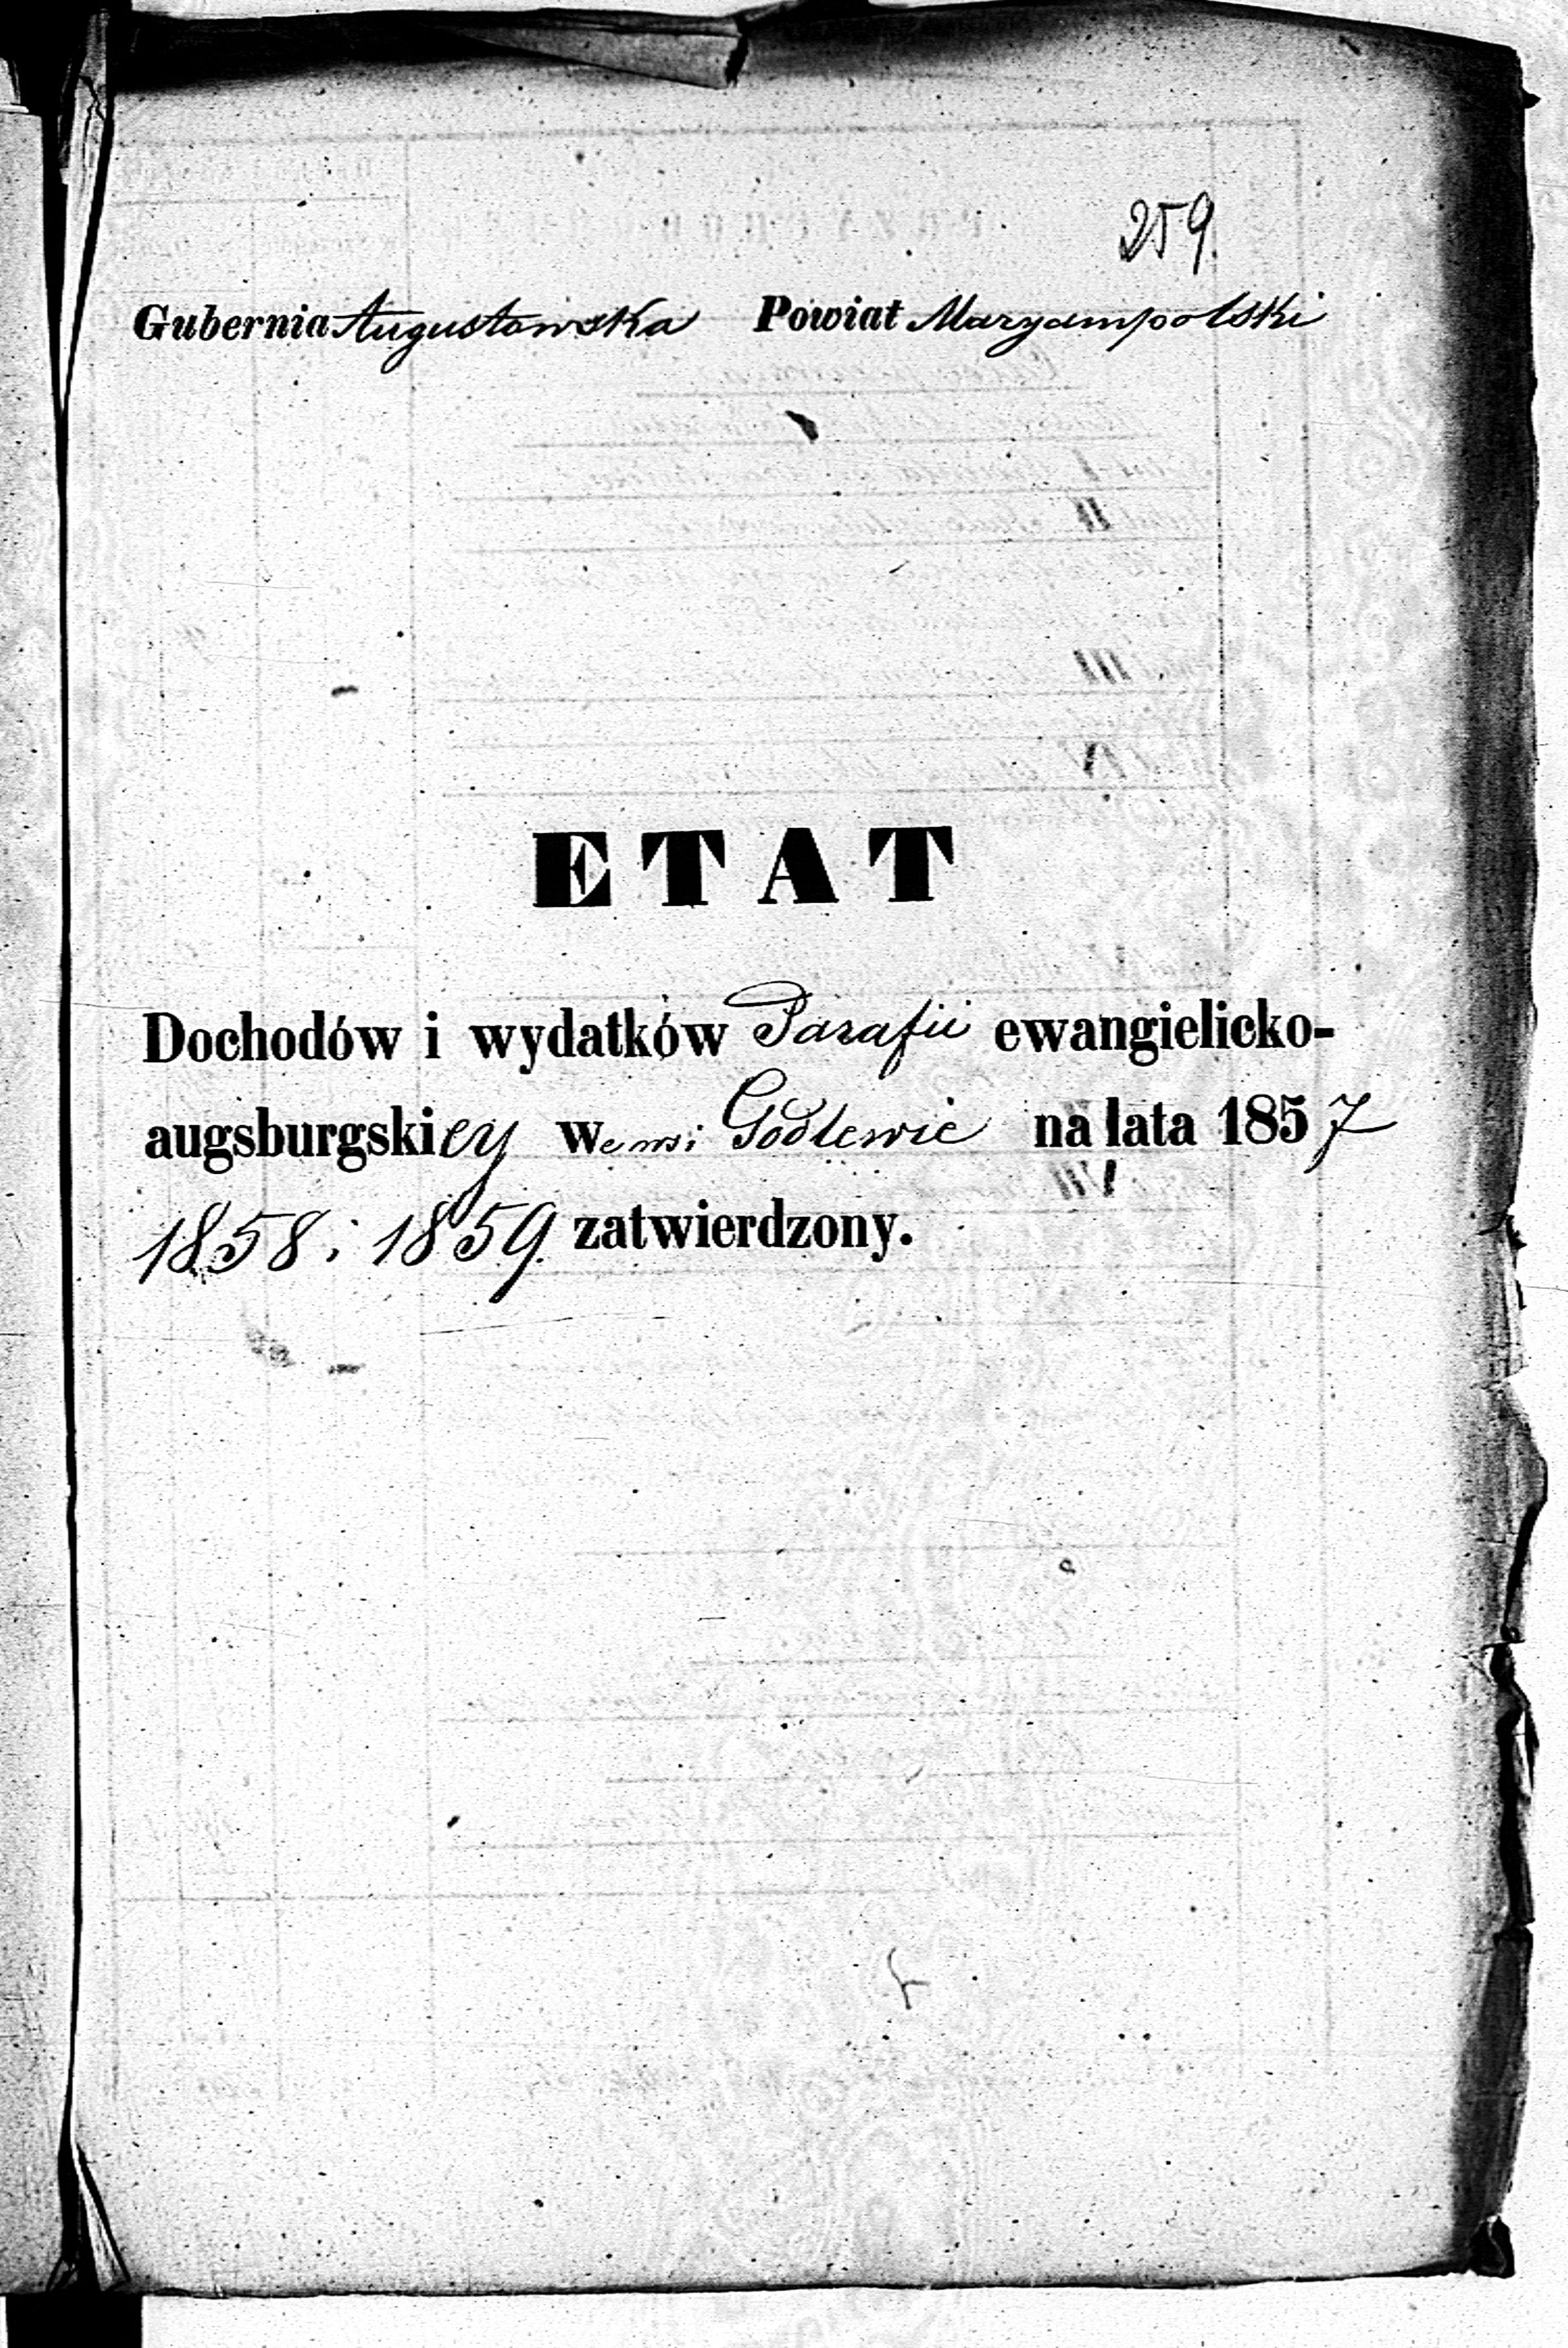 259.
Gubernia Augustowska Powiat Maryampolski
ETAT
Dochodów i wydatków Parafii ewangielicko-
augsburgskiey We wsi Godlewie na lata 1857
1858 i 1859. zatwierdzony.